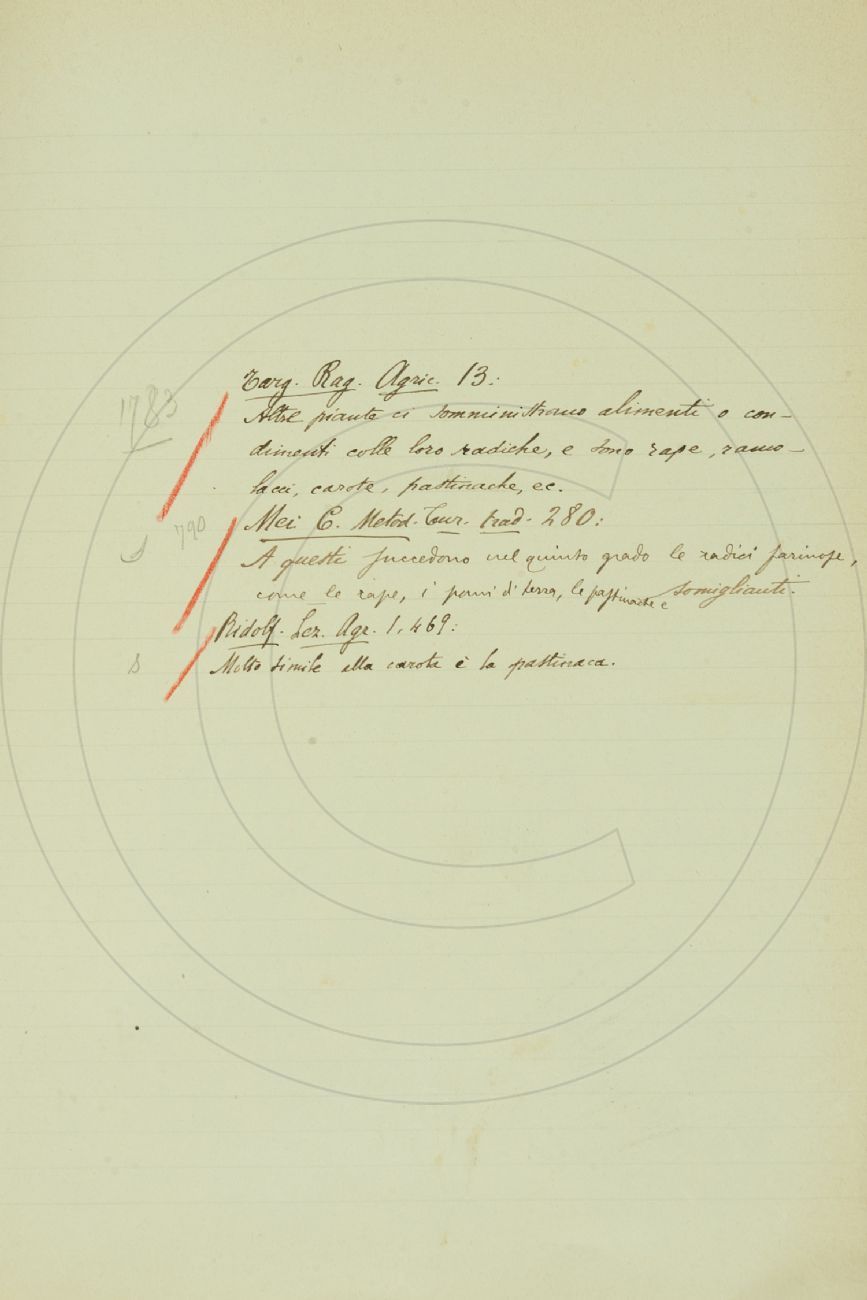 1783
Targ. Rag. Agric. 13.:
Altre piante ci somministrano alimenti o con-
dimenti colle loro radiche, e sono rape, ramo-
lacci, carote, pastinache, ec.
790
Mei C. Metod. Cur. trad. 280:
A questi succedono nel quinto grado le radici farinose,
come le rape, i pomi di terra, le pastinache e somiglianti.
Ridolf. Lez. Agr. 1, 469:
S
Molto simile alla carota è la pastinaca.